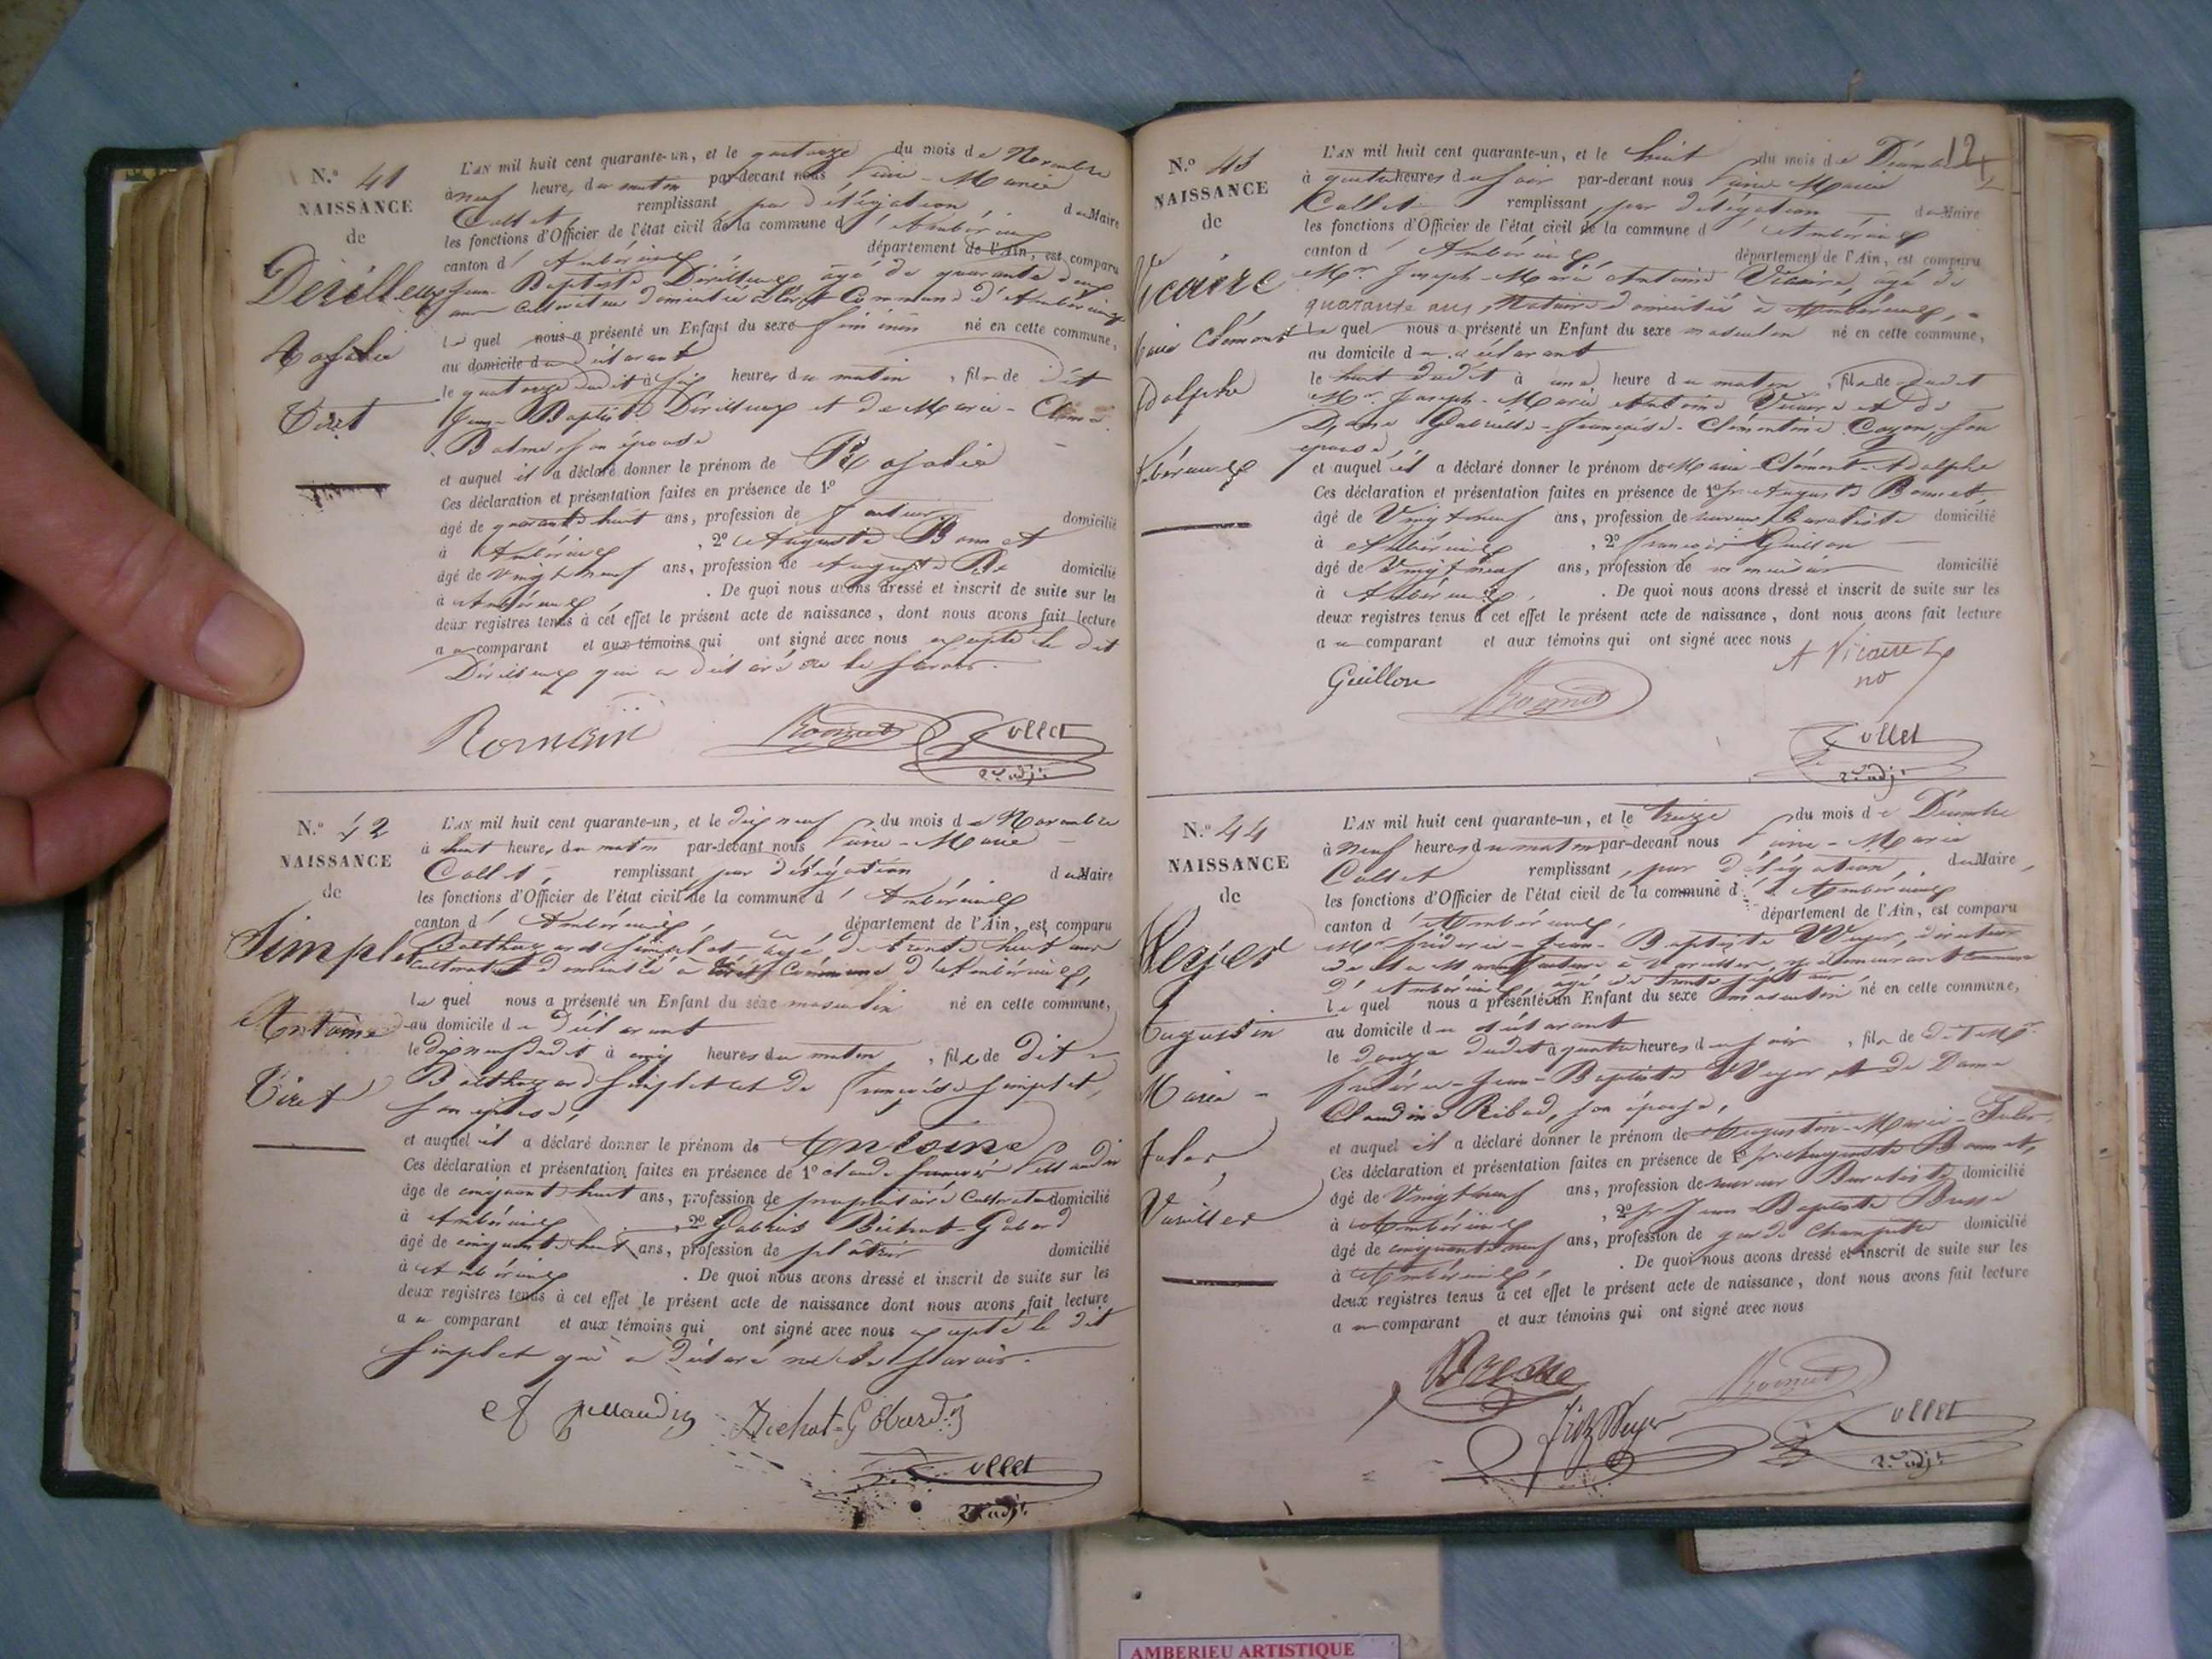 N.º 41
NAISSANCE
de
Dérilleux
Rosalie
Tiret
L'AN mil huit cent quarante-un, et le quatorze du mois de Novembre
à neuf heures du matin par-devant nous Marie
Collet remplissant par délégation du Maire
les fonctions d'Officier de l'état civil de la commune d' Ambérieux
canton d' Ambérieux département de l'Ain, est comparu
Jean-Baptiste Dérilleux âgé de quarante deux
ans cultivateur domicilié à Commune d'Ambérieux
lequel nous a présenté un Enfant du sexe féminin né en cette commune,
au domicile du déclarant
le quatorze dudit à six heures du matin, fille de dit
Jean-Baptiste Dérilleux et de Marie-
son épouse
et auquel il a déclaré donner le prénom de Rosalie
Ces déclaration et présentation faites en présence de 1º
âgé de quarante huit ans, profession de facteur domicilié
à Ambérieux, 2º Auguste Bonnet
âgé de vingt neuf ans, profession de domicilié
à Ambérieux. De quoi nous avons dressé et inscrit de suite sur les
deux registres tenus à cet effet le présent acte de naissance, dont nous avons fait lecture
au comparant et aux témoins qui ont signé avec nous excepté le dit
Dérilleux qui a déclaré ne le savoir.
Romain Bonnet Collet
2e adjt
N.º 42
NAISSANCE
de
Simplet
Antoine
Tiret
L'AN mil huit cent quarante-un, et le dix neuf du mois de Novembre
à huit heures du matin par-devant nous Marie
Collet, remplissant par délégation du Maire
les fonctions d'Officier de l'état civil de la commune d' Ambérieux
canton d' Ambérieux, département de l'Ain, est comparu
Balthazard Simplet âgé de trente huit ans
cultivateur domicilié à Commune d'Ambérieux,
lequel nous a présenté un Enfant du sexe masculin né en cette commune,
au domicile du déclarant
le dix neuf dudit à cinq heures du matin, fils de dit
Balthazard Simplet et de Françoise Simplet,
son épouse,
et auquel il a déclaré donner le prénom de Antoine
Ces déclaration et présentation faites en présence de 1º Claude François
âgé de cinquante huit ans, profession de propriétaire Cultivateur domicilié
à Ambérieux, 2º Gabriel Béchat-Gobard
âgé de cinquante huit ans, profession de plâtrier domicilié
à Ambérieux. De quoi nous avons dressé et inscrit de suite sur les
deux registres tenus à cet effet le présent acte de naissance dont nous avons fait lecture
au comparant et aux témoins qui ont signé avec nous excepté le dit
Simplet qui a déclaré ne le savoir.
Collet
2e adjt
12
N.º 43
NAISSANCE
de
Vicaire
Marie Clément
Adolphe
Ambérieux
L'AN mil huit cent quarante-un, et le huit du mois de Décembre
à quatre heures du soir par-devant nous Marie
Collet remplissant, par délégation du Maire
les fonctions d'Officier de l'état civil de la commune d' Ambérieux
canton d' Ambérieux, département de l'Ain, est comparu
Mr Joseph-Marie Antoine Vicaire, âgé de
quarante ans, Notaire domicilié à Ambérieux,
lequel nous a présenté un Enfant du sexe masculin né en cette commune,
au domicile du déclarant
le huit dudit à une heure du matin, fils de dudit
Mr Joseph-Marie Antoine Vicaire et de
Dame Gabrielle-Françoise-Clémentine Cozon, son
épouse,
et auquel il a déclaré donner le prénom de Marie-Clément-Adolphe
Ces déclaration et présentation faites en présence de 1º Sr Auguste Bonnet,
âgé de Vingt neuf ans, profession de buraliste domicilié
à Ambérieux, 2º François Guillon
âgé de Vingt neuf ans, profession de menuisier domicilié
à Ambérieux. De quoi nous avons dressé et inscrit de suite sur les
deux registres tenus à cet effet le présent acte de naissance, dont nous avons fait lecture
au comparant et aux témoins qui ont signé avec nous
A Vicaire
no
Guillon Bonnet
Collet
2e adjt
N.º 44
NAISSANCE
de
Weyer
Augustin
Marie-
Jules,
Vareilles
L'AN mil huit cent quarante-un, et le treize du mois de Décembre
à neuf heures du matin par-devant nous Marie
Collet remplissant, par délégation, du Maire,
les fonctions d'Officier de l'état civil de la commune d' Ambérieux
canton d' Ambérieux, département de l'Ain, est comparu
Mr Fréderic-Jean-Baptiste Weyer, directeur
de la Manufacture à Vareilles, y demeurant commune
d'Ambérieux, âgé de trente sept ans
lequel nous a présenté un Enfant du sexe masculin né en cette commune,
au domicile du déclarant
le douze dudit à quatre heures du soir, fils de dit Mr
Fréderic-Jean-Baptiste Weyer et de Dame
Claudine Ribod, son épouse,
et auquel il a déclaré donner le prénom de Augustin-Marie-Jules,
Ces déclaration et présentation faites en présence de 1º Sr Auguste Bonnet,
âgé de Vingt neuf ans, profession de Buraliste domicilié
à Ambérieux, 2º Sr Jean Baptiste Bresse
âgé de cinquante neuf ans, profession de garde champêtre domicilié
à Ambérieux. De quoi nous avons dressé et inscrit de suite sur les
deux registres tenus à cet effet le présent acte de naissance, dont nous avons fait lecture
au comparant et aux témoins qui ont signé avec nous
Bresse Bonnet
Fritz Weyer Collet
2e adjt
AMBERIEU ARTISTIQUE